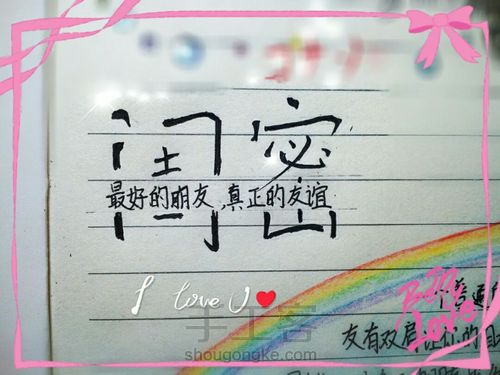 闺密
最好的朋友,真正的友谊
I love U
普通
友有双肩让你的
手工客
shougongke.com